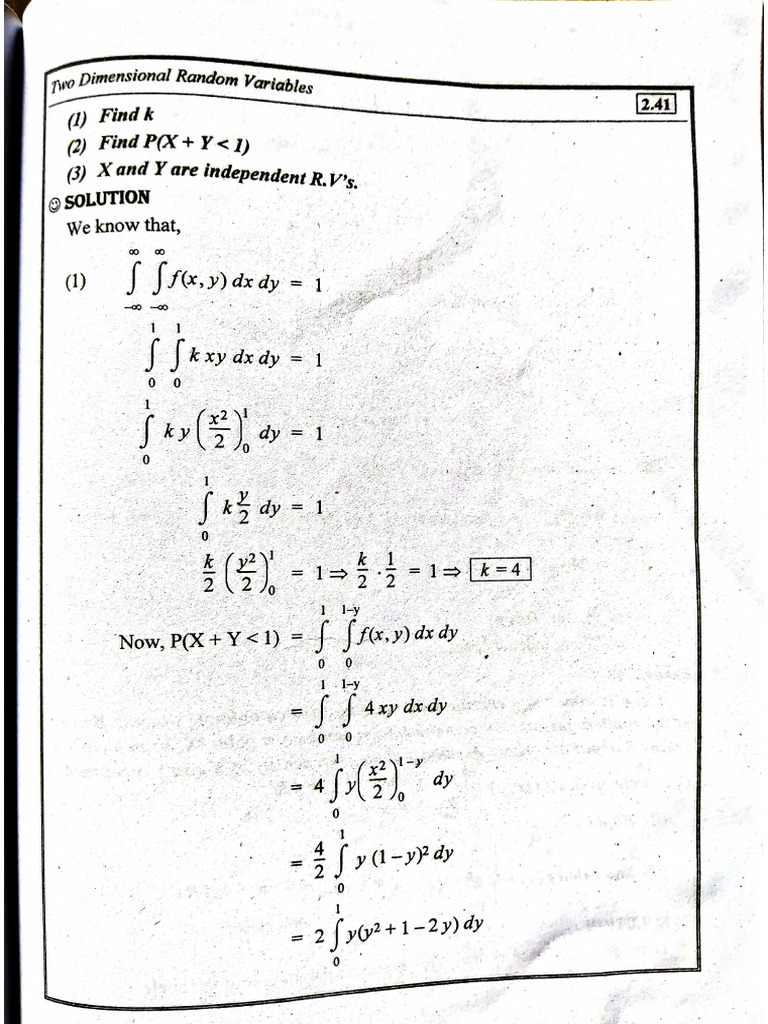 Two Dimensional Random Variables
2.41
(1) Find k
(2) Find P(X + Y < 1)
(3) X and Y are independent R.V's.
☺ SOLUTION
We know that,
(1) ∫_{-∞}^{∞} ∫_{-∞}^{∞} f(x, y) dx dy = 1
∫_0^1 ∫_0^1 k xy dx dy = 1
∫_0^1 k y (x²/2)_0^1 dy = 1
∫_0^1 k y/2 dy = 1
k/2 (y²/2)_0^1 = 1 ⇒ k/2 · 1/2 = 1 ⇒ k = 4
Now, P(X + Y < 1) = ∫_0^1 ∫_0^{1–y} f(x, y) dx dy
= ∫_0^1 ∫_0^{1–y} 4 xy dx dy
= 4 ∫_0^1 y (x²/2)_0^{1–y} dy
= 4/2 ∫_0^1 y (1 – y)² dy
= 2 ∫_0^1 y(y² + 1 – 2 y) dy